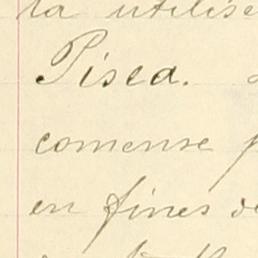 la utilise
Pisca.
comense p
en fines de